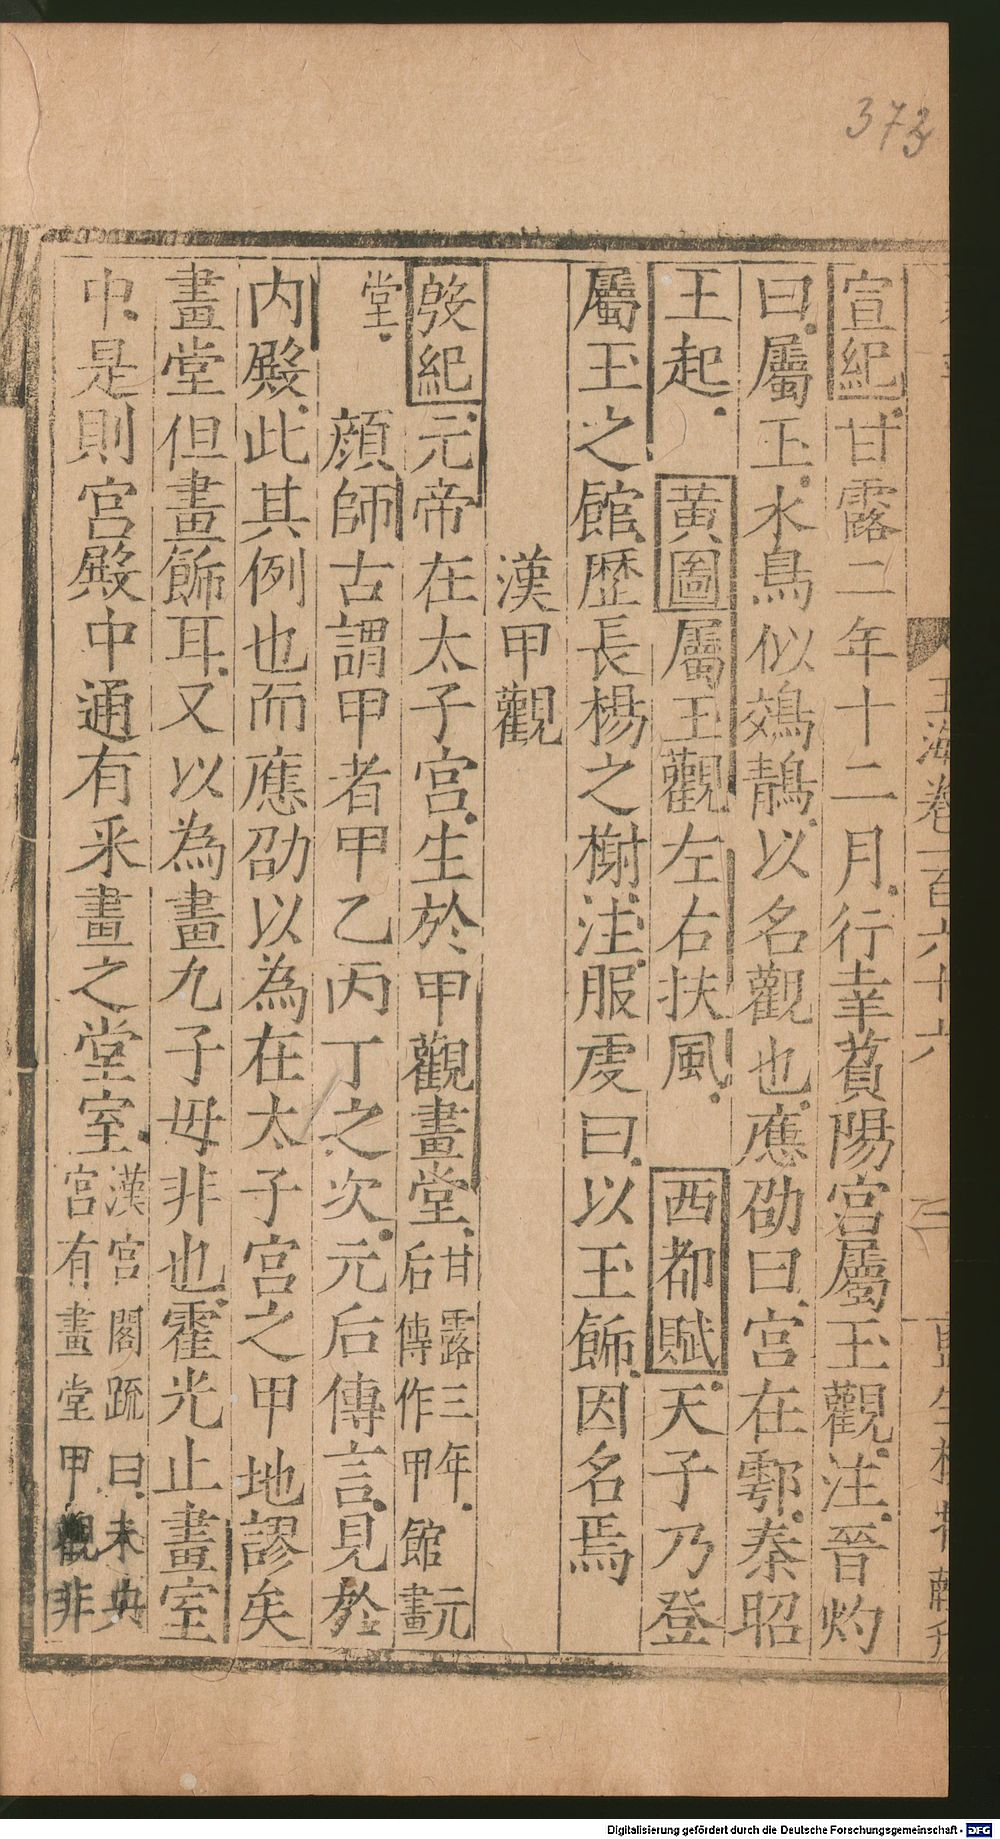 373
玉海卷一百六十六
宣紀甘露二年十二月行幸萯陽宮屬玉觀注晉灼
曰屬玉水鳥似鵁鶄以名觀也應劭曰宮在鄠秦昭
王起 黃圖屬玉觀左右扶風 西都賦天子乃登
屬玉之館歷長楊之榭注服虔曰以玉飾因名焉
漢甲觀
成紀元帝在太子宮生於甲觀畫堂甘露三年元
后傳作甲館畫
堂 顔師古謂甲者甲乙丙丁之次元后傳言見於
内殿此其例也而應劭以為在太子宮之甲地謬矣
畫堂但畫飾耳又以為畫九子毋非也霍光止畫室
中是則宮殿中通有采畫之堂室漢宮閣疏曰未央
宮有畫堂甲觀非
Digitalisierung gefördert durch die Deutsche Forschungsgemeinschaft - DFG